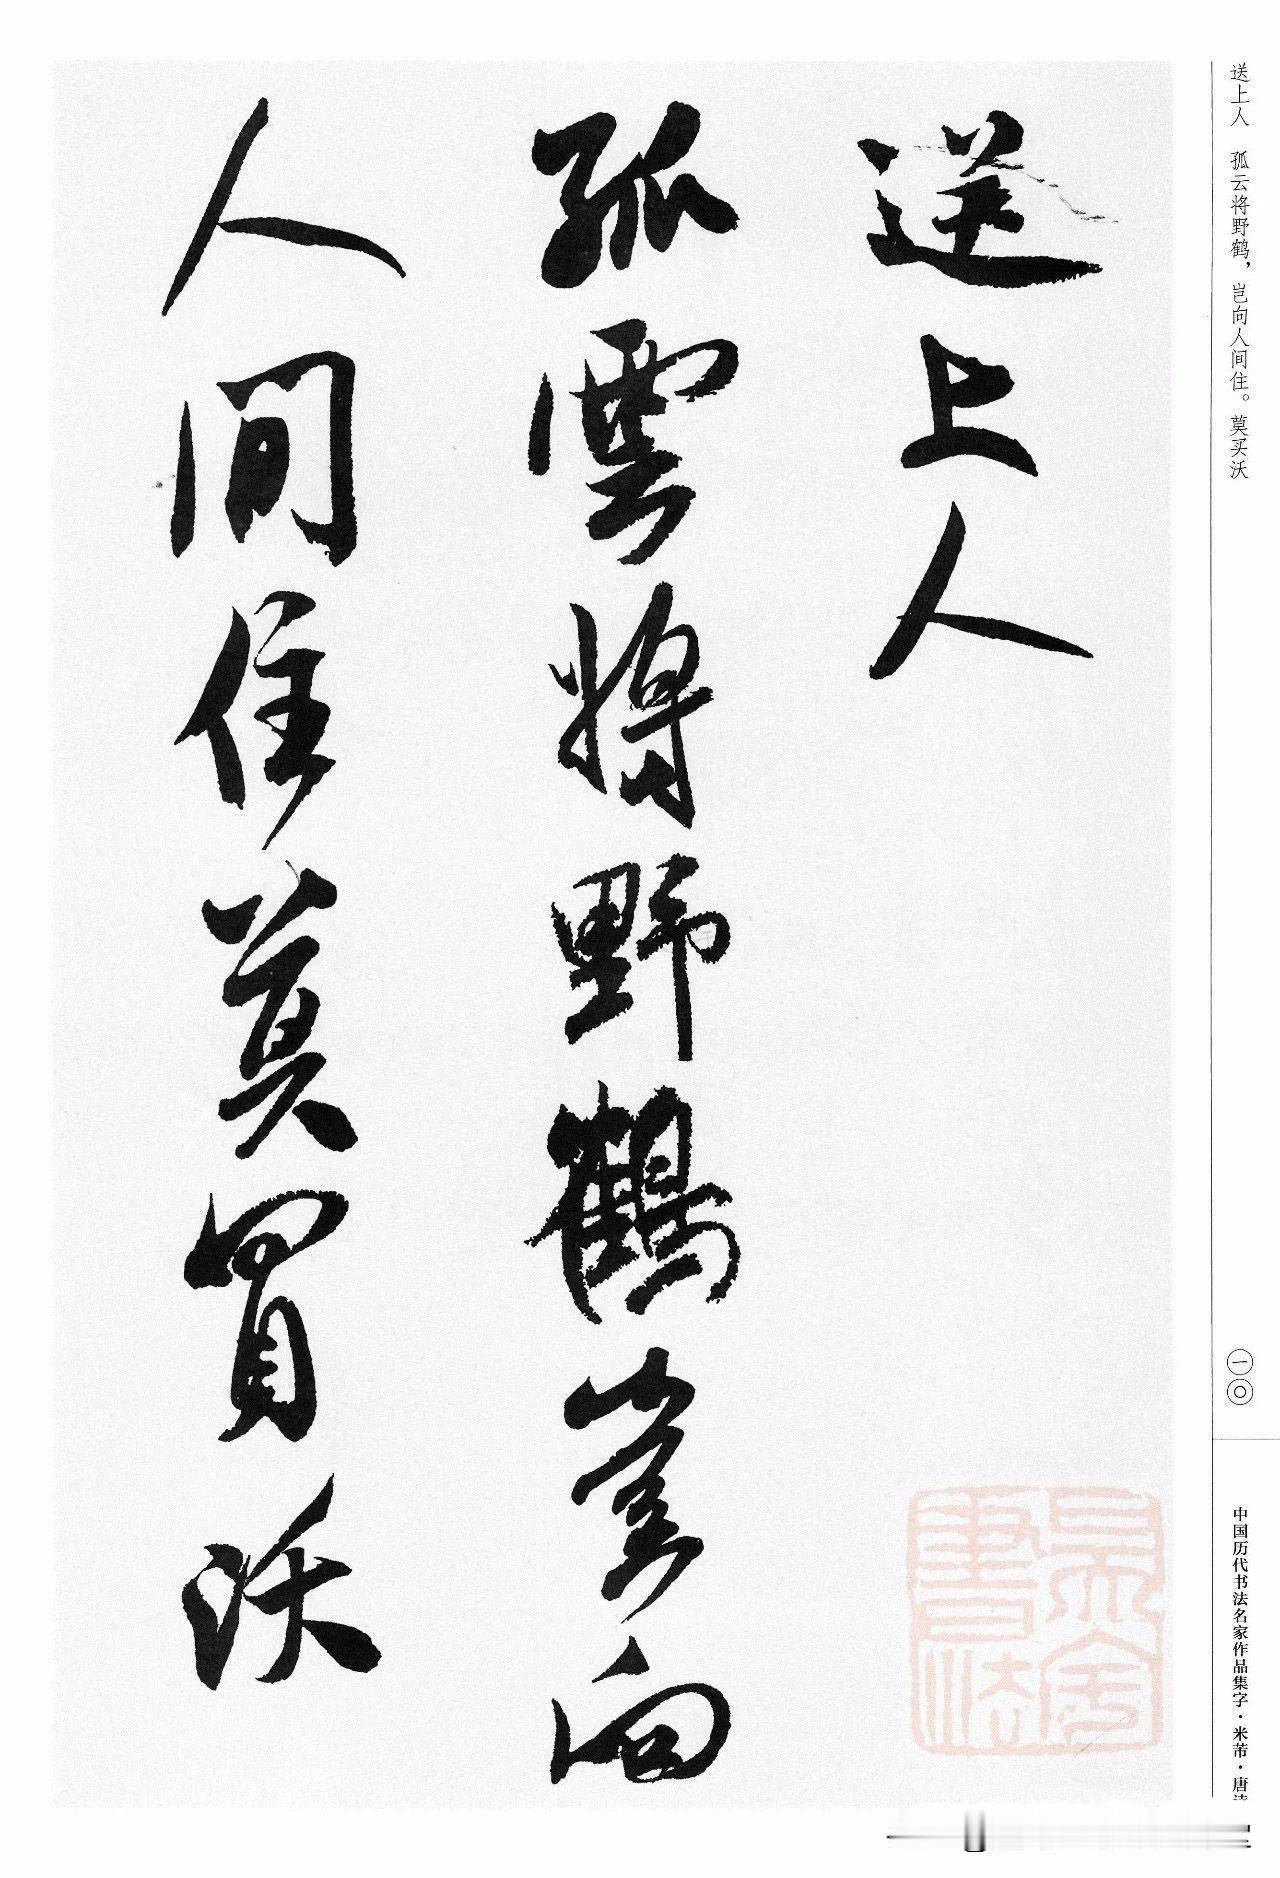 送上人
孤雲將野鶴豈向
人間住莫買沃
送上人 孤云将野鹤，岂向人间住。莫买沃
一〇
中国历代书法名家作品集字·米芾·唐诗